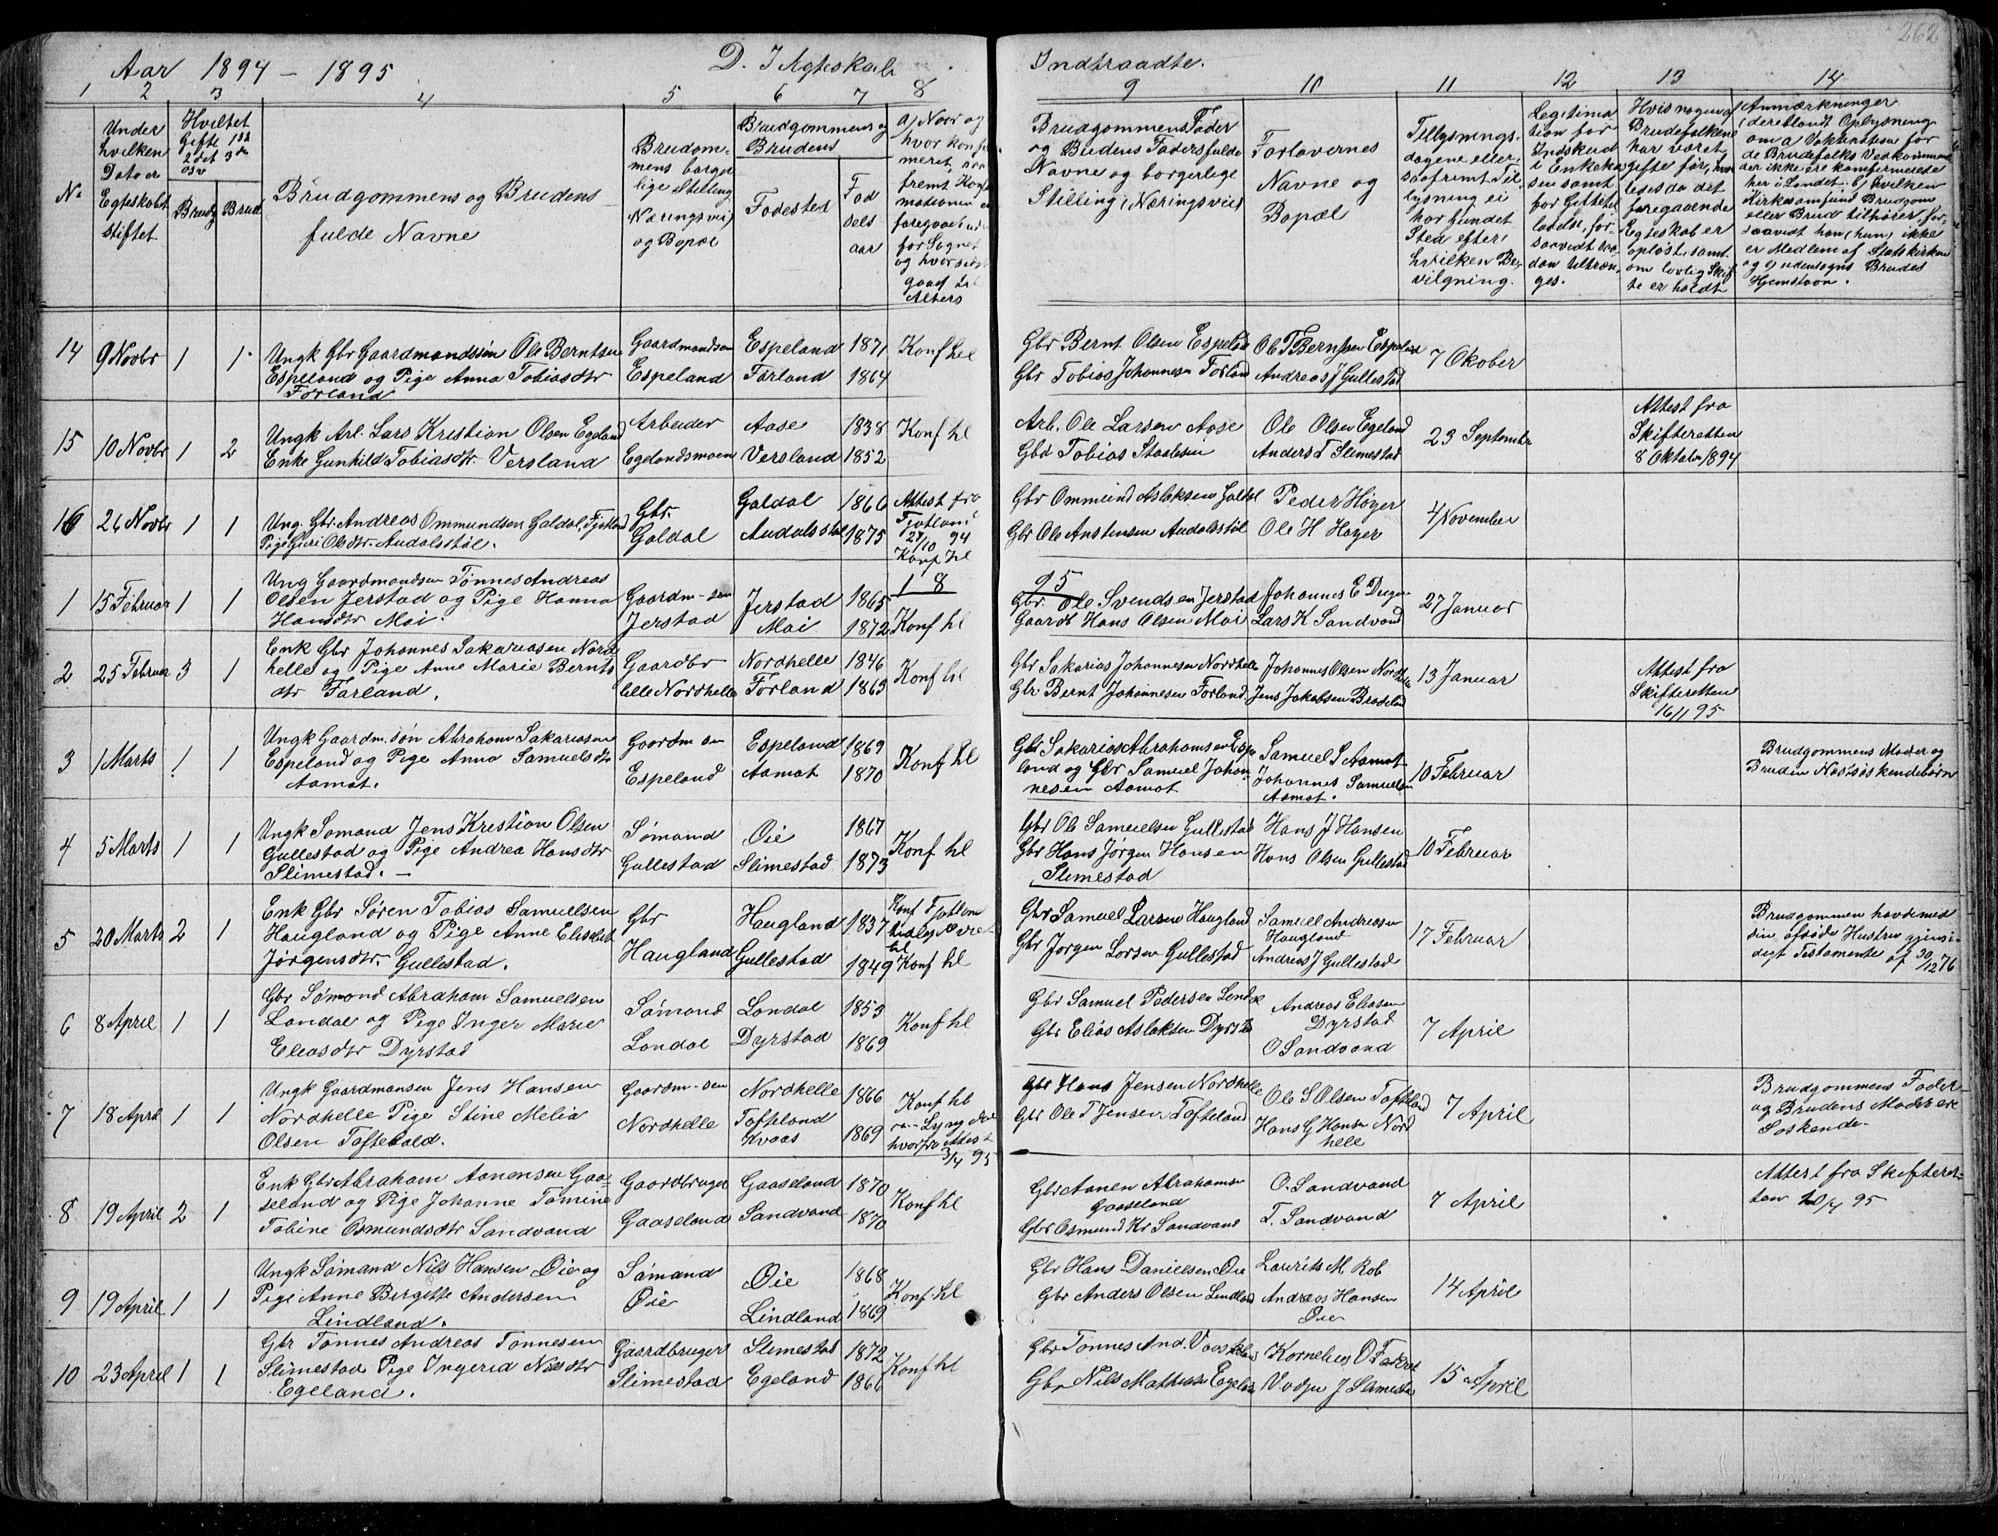 262
Aar 1894 - 1895
D. I Ægteskab
Indtraadte.
1 2 3 4 5 6 7 8 9 10 11 12 13 14
No
Under hvilken Dato er Egteskabet stiftet
Hvilket Gifte 1ste 2det 3die osv
Brudg Brud
Brudgommens og Brudens fulde Navne
Brudgommens borgerlige Stilling Næringsvei og Bopæl
Brudgommens og Brudens
Fodested
Fodselsaar
a) Naar og hvor konfirmeret
Brudgommens Fader og Budens Faders fulde Navne og borgerlige Stilling, Næringsvei
Forlovernes Navne og Bopæl
Tillysningsdagene eller, saafremt Tillysning ei har fundet Sted efter, hvilken Bevilgning.
Legitimation for Indskud i Enkekassen samt for Giftetilladelse, forsaavidt saadan Udtrænges.
Hvis nogen af Brudefolkene har været gifte før, hvorledes da det foregaaende Egteskab er opløst, samt om lovlig Skifte er holdt
Anmærkninger (deriblandt Oplysning om a) Vakcination for de Brudefolks Vedkommende der ikke ere konfirmerede her i Landet b) hvilken Kirkesamfund Brudgom eller Brud tilhører, forsaavidt han (hun) ikke er Medlem af Statskirken og c) udensogns Brudes Hjemstavn.
14 9 Novbr 1 1 Ungk Gbr Gaardmandssøn Ole Berntsen Gaardmandsøn Espeland 1871 Konf hl Gbr Bernt Olsen Espeland Ole T Berntsen Espeland 7 Oktober
Espeland og Pige Anna Tobiasdtr Espeland Førland 1864 Gbr Tobias Johannesen Førland Andreas J Gullestad
Førland
15 10 Novbr 1 2 Ungk Arb. Lars Kristian Olsen Egeland Arbeider Aase 1838 Konf hl Arb. Ole Larsen Aase Ole Olsen Egeland 23 September Attest fra Skifteretten 8 Oktober 1894
Enke Gunhild Tobiasdtr. Versland Egelandsmoen Versland 1852 Gbd Tobias Staalesen Anders T Slimestad
16 26 Novbr 1 1 Ung. Gbr. Andreas Ommundsen Galdal, Fjotland Gbr. Galdal 1866 Attest fra Fjotland 27/10 94 Gbr Ommund Aslaksen Galdal Peder Høyer 4 November
Pige Guri Olsdtr. Audalsstøl. Galdal Audalsstøl 1875 Konf hl Gbr Ole Anstensen Audalsstøl Ole H Høyer
1 8 95
1 15 Februar 1 1 Ung Gaardmandsøn Tønnes Andreas Gaardm-søn Jerstad 1865 Gbr. Ole Svendsen Jerstad Johannes E 27 Januar
Olsen Jerstad og Pige Hanna Jerstad Moi 1872 Konf hl Gaardb Hans Olsen Moi Lars K Sandvand
Hansdtr Moi.
2 25 Februar 3 1 Enk Gbr Johannes Sakariasen Nord- Gaardbr Nordhelle 1846 Konf hl Gbr Sakarias Johannesen Nordhelle Johannes Olsen Nordhelle 13 Januar Attest fra Skifteretten 16/1 95
helle og Pige Anne Marie Bernts- lille Nordhelle Førland 1863 Gbr. Bernt Johannesen Førland. Jens Jakobsen
dtr Førland.
3 1 Marts 1 1 Ungk Gaardm. søn Abraham Sakariasen Gaardm søn Espeland 1869 Konf hl Gbr Sakarias Abrahamsen Espe- Samuel S Aamot 10 Februar Brudgommens Moder og Bruden Næstsøskendebørn
Espeland og Pige Anna Samuelsdtr Espeland Aamot 1870 land og Gbr Samuel Johan- Johannes Samuelsen
Aamot. nesen Aamot Aamot.
4 5 Marts 1 1 Ungk Sømand Jens Kristian Olsen Sømand Øie 1867 Konf hl Gbr Ole Samuelsen Gullestad Hans J Hansen 10 Februar
Gullestad og Pige Andrea Hansdtr Gullestad Slimestad 1873 Gbr Hans Jørgen Hansen Hans Olsen Gullestad
Slimestad. Slimestad
5 20 Marts 2 1 Enk Gbr Søren Tobias Samuelsen Gbr Haugland 1837 Konf Fjotland Gbr Samuel Larsen Haugland Samuel Andreasen Haugland 17 Februar Brudgommen havde med sin afdøde Hustru gjensidigt Testamente af 30/12 76
Haugland og Pige Anne Elisabet Haugland Gullestad 1849 Konf hl Gbr Jørgen Larsen Gullestad Andreas J Gullestad
Jørgensdtr. Gullestad.
6 8 April 1 1 Gbr Sømand Abraham Samuelsen Sømand Londal 1853 Konf hl Gbr Samuel Pedersen Londal Andreas Eliasen Dyrstad 7 April
Londal og Pige Inger Marie Londal Dyrstad 1869 Gbr Elias Aslaksen Dyrstad O Sandvand
Eliasdtr Dyrstad
7 18 April 1 1 Ungk Gaardmansøn Jens Hansen Gaardm-søn Nordhelle 1866 Konf hl Gbr Hans Jensen Nordhelle Ole S Olsen Tofteland 7 April Brudgommens Fader og Brudens Moder ere Søskende.
Nordhelle Pige Stine Melia Nordhelle Tofteland Kvaas 1869 Lyngdal hvorfra Attest 3/4 95 Gbr Ole T Jensen Tofteland Hans G Hansen Nordhelle
Olsen Tofteland.
8 19 April 2 1 Enk Gbr Abraham Aanensen Gaa- Gaardbruger Gaaseland 1870 Konf hl Gbr Aanen Abrahamsen Gaaseland O. Sandvand 7 April Attest fra Skifteretten 20/4 95
seland og Pige Johanne Tomine Gaaseland Sandvand 1870 Gbr Osmund Kr Sandvand T. Sandvand
Tobine Osmundsdtr Sandvand
9 19 April 1 1 Ungk Sømand Nils Hansen Øie og Sømand Øie 1868 Konf hl Gbr Hans Danielsen Øie Laurits M Rob 14 April
Pige Anne Birgitte Andersen Øie Lindland 1869 Gbr Anders Olsen Lindland Andreas Hansen Øie
Lindland.
10 23 April 1 1 Gbr Tønnes Andreas Tønnesen Gaardbruger Slimestad 1872 Konf hl Gbr Tønnes And. Kornelius O 15 April
Slimestad Pige Ingerid Nilsdtr Slimestad Egeland 1866 Gbr Nils Mathisen Egeland J Slimestad
Egeland.